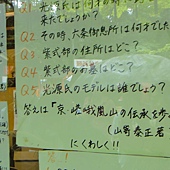 源氏は何才の時
来たでしょうか?
Q2 その時、六条御息所は何才でした
Q3 紫式部の住所はどこ?
Q4 紫式部のお墓はどこ?
Q5 光源氏のモデルは誰でしょう?
答えは「京・嵯峨嵐山の伝承を歩
(山嵜泰正著
にくわしく!!